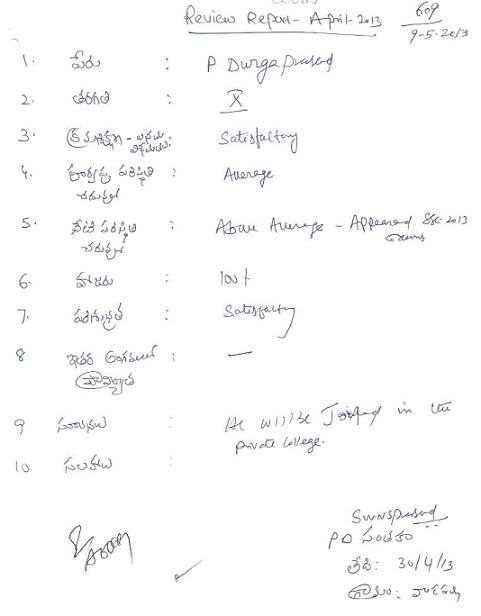 Review Report - April-2013
609
9-5-2013
1. పేరు : P Durga Prasad
2. తరగతి : X
3. క్రమశిక్షణ - వినయ : Satisfactory
విధేయతలు
4. పూర్వపు పరిస్థితి : Average
చదువులో
5. నేటి పరిస్థితి : Above Average - Appeared SSC-2013
చదువులో Exams
6. హాజరు : 100%
7. పరిశుభ్రత : Satisfactory
8 ఇతర అంశములలో : —
ప్రావీణ్యత
9 సూచనలు : He will be Joined in the
private College.
10 సలహాలు :
SWNSPrasad
PO సంతకం
తేది: 30/4/13
గ్రామం: